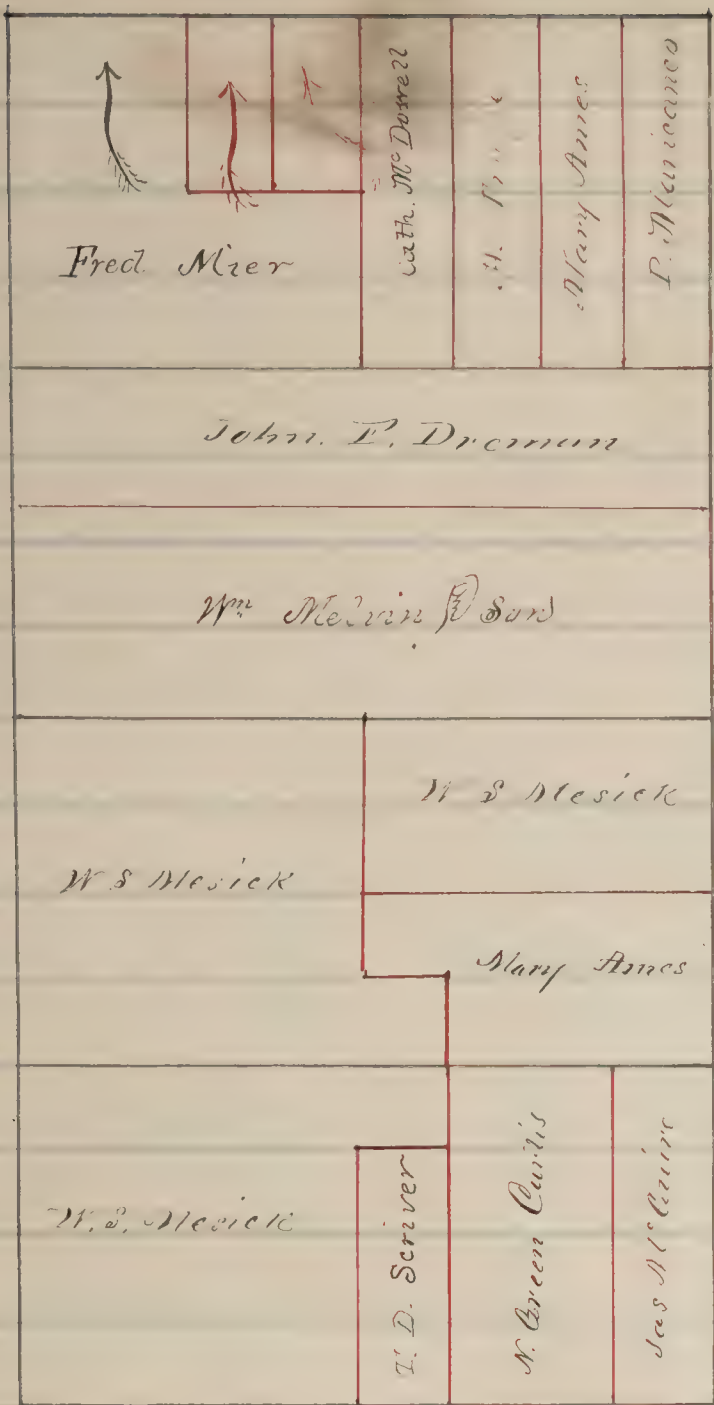 Fred. Mier
Cath. McDowell
Mary Ames
John. F. Dreman
Wm Melvin & Son
W S Mesick
W S Mesick
Mary Ames
W. S. Mesick
T. D. Scriver
N. Green Curtis
Jas McGuire